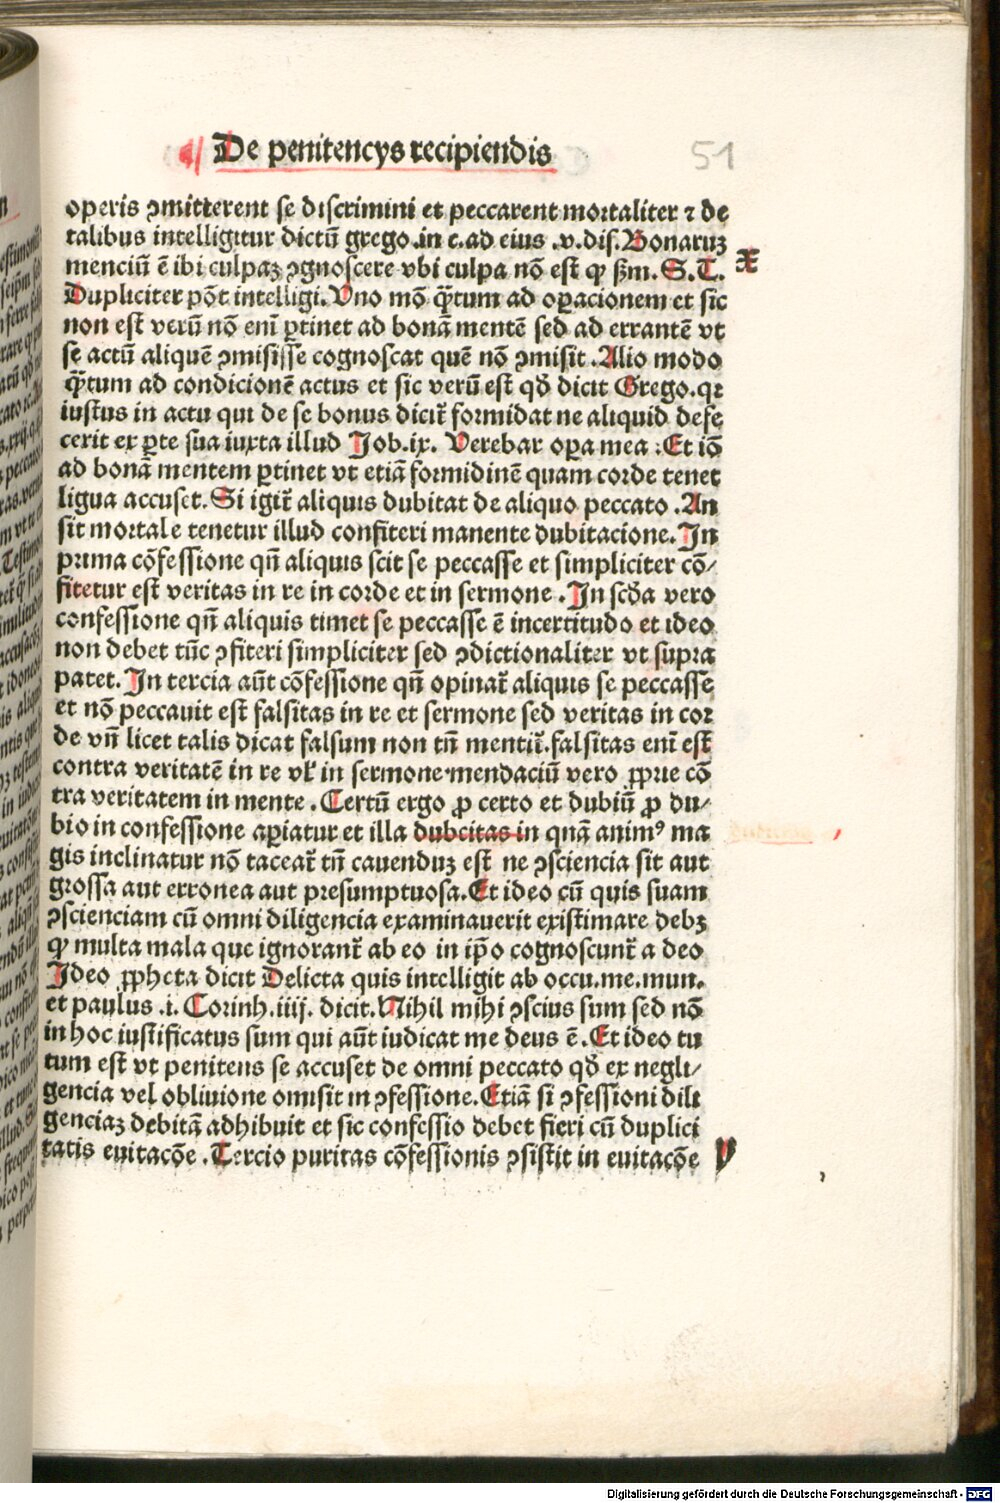 De penitencys recipiendis
51
operis ꝯmitterent se discrimini et peccarent mortaliter ⁊ de
talibus intelligitur dictū grego.in c.ad eius .v.dis.Bonaruꝫ
menciū ē ibi culpaꝫ ꝯgnoscere vbi culpa nō est ꝙ ẜm.S.T.
X
Dupliciter pōt intelligi.Uno mō q̄tum ad oꝑacionem et sic
non est verū nō enī ꝑtinet ad bonā mentē sed ad errantē vt
se actū aliquē ꝯmisisse cognoscat quē nō ꝯmisit .Alio modo
q̄tum ad condicionē actus et sic verū est qđ dicit Grego.qꝛ
iustus in actu qui de se bonus dicit᷑ formidat ne aliquid defe
cerit ex ꝑte sua iuxta illud Job.ix. Verebar oꝑa mea :Et iō
ad bonā mentem ꝑtinet vt etiā formidinē quam corde tenet
ligua accuset.Si igit᷑ aliquis dubitat de aliquo peccato .An
sit mortale tenetur illud confiteri manente dubitacione.In
prima cōfessione qn̄ aliquis scit se peccasse et simpliciter cō⸗
fitetur est veritas in re in corde et in sermone .In scđa vero
confessione qn̄ aliquis timet se peccasse ē incertitudo et ideo
non debet tūc ꝯfiteri simpliciter sed ꝯdictionaliter vt supra
patet.In tercia aūt cōfessione qn̄ opinat᷑ aliquis se peccasse
et nō peccauit est falsitas in re et sermone sed veritas in cor
de vn̄ licet talis dicat falsum non tn̄ mentit᷑.falsitas enī est
contra veritatē in re vl᷑ in sermone·mendaciū vero ꝓprie cō
tra veritatem in mente .Certū ergo ꝓ certo et dubiū ꝓ du⸗
bio in confessione aꝑiatur et illa dubcitas in quā animꝰ ma
gis inclinatur nō taceat᷑ tn̄ cauenduꝫ est ne ꝯsciencia sit aut
grossa aut erronea aut presumptuosa.Et ideo cū quis suam
ꝯscienciam cū omni diligencia examinauerit existimare debꝫ
ꝙ multa mala que ignorant᷑ ab eo in ip̄o cognoscunt᷑ a deo
Ideo ꝓpheta dicit Delicta quis intelligit ab occu.me.mun.
et paulus .i. Corinh.iiij. dicit.Nihil mihi ꝯscius sum sed nō
in hoc iustificatus sum qui aūt iudicat me deus ē .Et ideo tu
tum est vt penitens se accuset de omni peccato qđ ex negli⸗
gencia vel obliuione omisit in ꝯfessione.Etiā si ꝯfessioni dili
genciaꝫ debitā adhibuit et sic confessio debet fieri cū duplici
tatis euitacōe .Tercio puritas cōfessionis ꝯsistit in euitacōe
Y
Digitalisierung gefördert durch die Deutsche Forschungsgemeinschaft - DFG